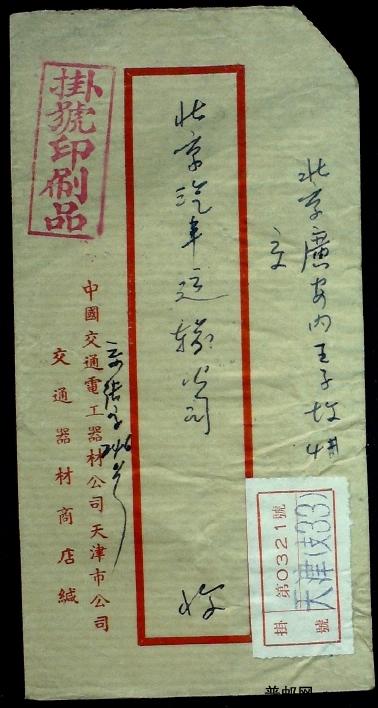 北京廣安内王子坟
交
北京汽車运输公司
收
掛號印刷品
中國交通電工器材公司天津市公司
交通器材商店緘
246号
天津(支33)
第0321號
掛號
普邮网